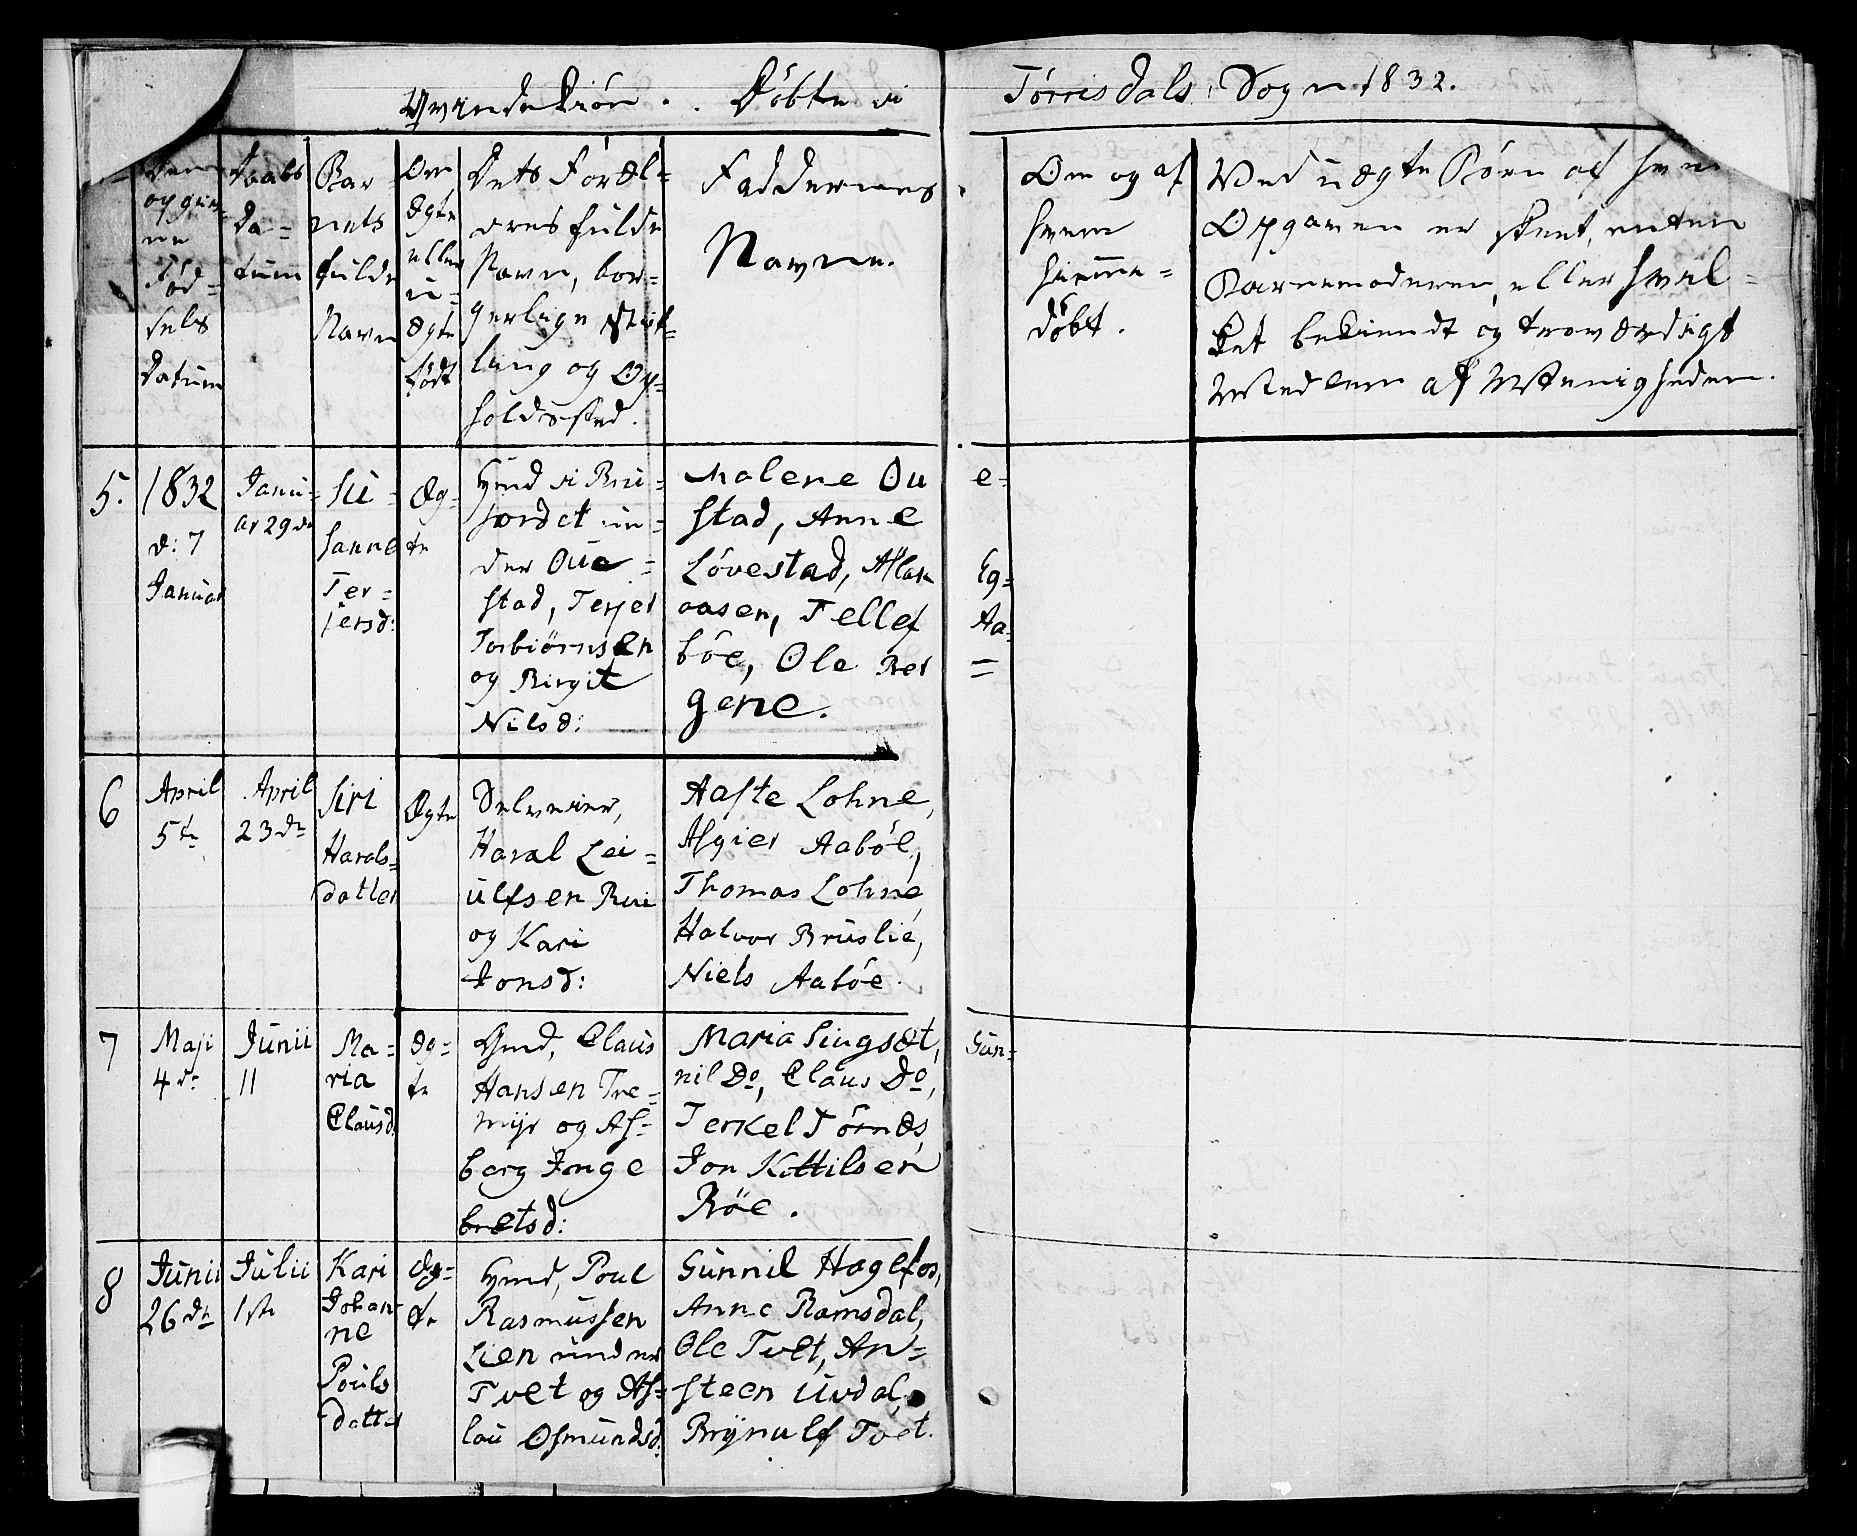 Qvindekiøn . . Döbte vi Tørrisdals Sogn 1832.
Den
opgiv-
ne
Föd-
sels
Datum
Daabs
Da-
tum
Bar-
nets
fulde
Navn
Om
Ægte
eller
u-
Ægte
födt
Dets Foræl-
dres fulde
Navn, bor-
gerlige Stil-
ling og Op-
holdssted.
Faddernes
Navne.
Om og af
hvem
hiemme-
döbt.
Ved uægte Börn af hvem
Opgaven er skeet, enten
Barnemoderen, eller hvil-
ket bekiendt og troværdigt
Medlem af Menigheden.
5.
1832
d: 7
Januar
Janu-
ar 29de
Su-
sanne
Ter-
jersd:
Æg-
te
Hmd i
hordet un-
der Oue-
stad, Terjer
Torbiørnsen
og Birgit
Nilsd:
Malene Oue-
stad, Anne
Lövestad, Aslak Eg-
aasen, Tellef Aa-
böe, Ole Ber=
gene.
6
April
5te
April
23de
Siri
Harals-
datter
Ægte
Selveier,
Haral Lei-
ulfsen
og Kari
Jonsd:
Aaste Lohne,
Asgier Aaböe,
Thomas Lohne,
Halvor Bruslie,
Niels Aaböe.
7
Maji
4de
Junii
11
Ma-
ria
Clausd:
Æg-
te
Hmd, Claus
Hansen Tre-
myr og As-
berg Inge
bretsd:
Maria Singsæt, Gun-
nil Do, Claus Do,
Terkel Törnæs,
Jon Kittilsen
Böe.
8
Junii
26de
Julii
1ste
Kari
Johan-
ne
Pouls
datter
Æg-
te
Hmd, Poul
Rasmussen
Lien under
Tvet og As-
lou Osmundsd:
Gunnil Haglfos,
Anne Ramsdal,
Ole Tvet, An-
steen Uvdal,
Brynulf Tvet.